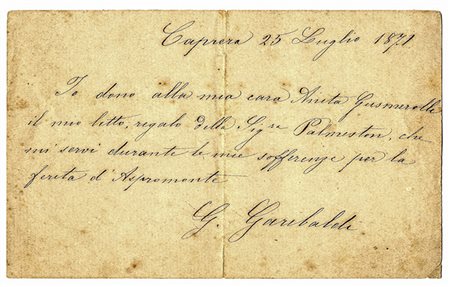 Caprera 25 Luglio 1871
Io dono alla mia cara Anita Gusmerolli
il mio letto, regalo della Sig.ra Palmerston, che
mi servì durante le mie sofferenze per la
ferita d'Aspromonte
G. Garibaldi